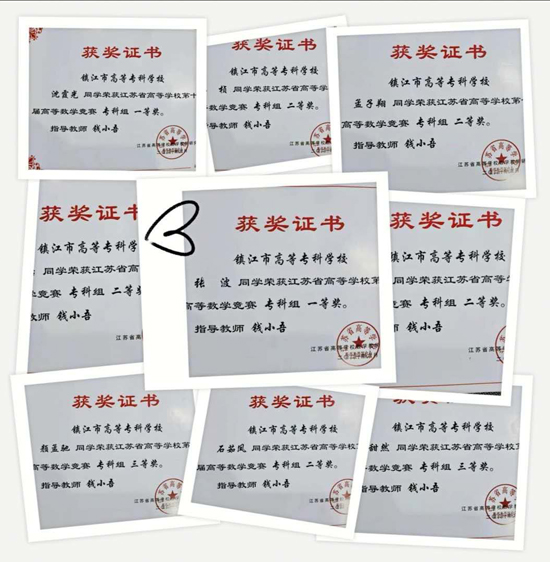 获奖证书
镇江市高等专科学校
沈霞光 同学荣获江苏省高等学校第十
届高等数学竞赛 专科组 一等奖。
指导教师 钱小吾
江苏省高等学校
获奖证书
镇江市高等专科学校
桢 同学荣获江苏省高等学校
数学竞赛 专科组 二等奖。
教师 钱小吾
获奖证书
镇江市高等专科学校
孟子翔 同学荣获江苏省高等学校第
高等数学竞赛 专科组 二等奖。
指导教师 钱小吾
江苏省高等学校
获奖证书
镇江市高等专科学
同学荣获江苏省高等
数学竞赛 专科组 二等
教师 钱小吾
获奖证书
镇江市高等专科学校
张 波 同学荣获江苏省高等学校第
高等数学竞赛 专科组 一等奖。
指导教师 钱小吾
江苏省高等学校
奖证书
市高等专科学校
同学荣获江苏省高等学校
学竞赛 专科组 二等奖。
教师 钱小吾
江苏省高等学
获奖证书
镇江市高等专科学校
颜孟驰 同学荣获江苏省高等学校
高等数学竞赛 专科组 三等奖。
指导教师 钱小吾
江苏省高
获奖证书
镇江市高等专科学校
石茹凤 同学荣获江苏省高等学校第
届高等数学竞赛 专科组 二等奖。
指导教师 钱小吾
江苏省高等学校
获奖证书
镇江市高等专科学校
甜然 同学荣获江苏省高等学校
高等数学竞赛 专科组 三等奖。
指导教师 钱小吾
江苏省高等学校